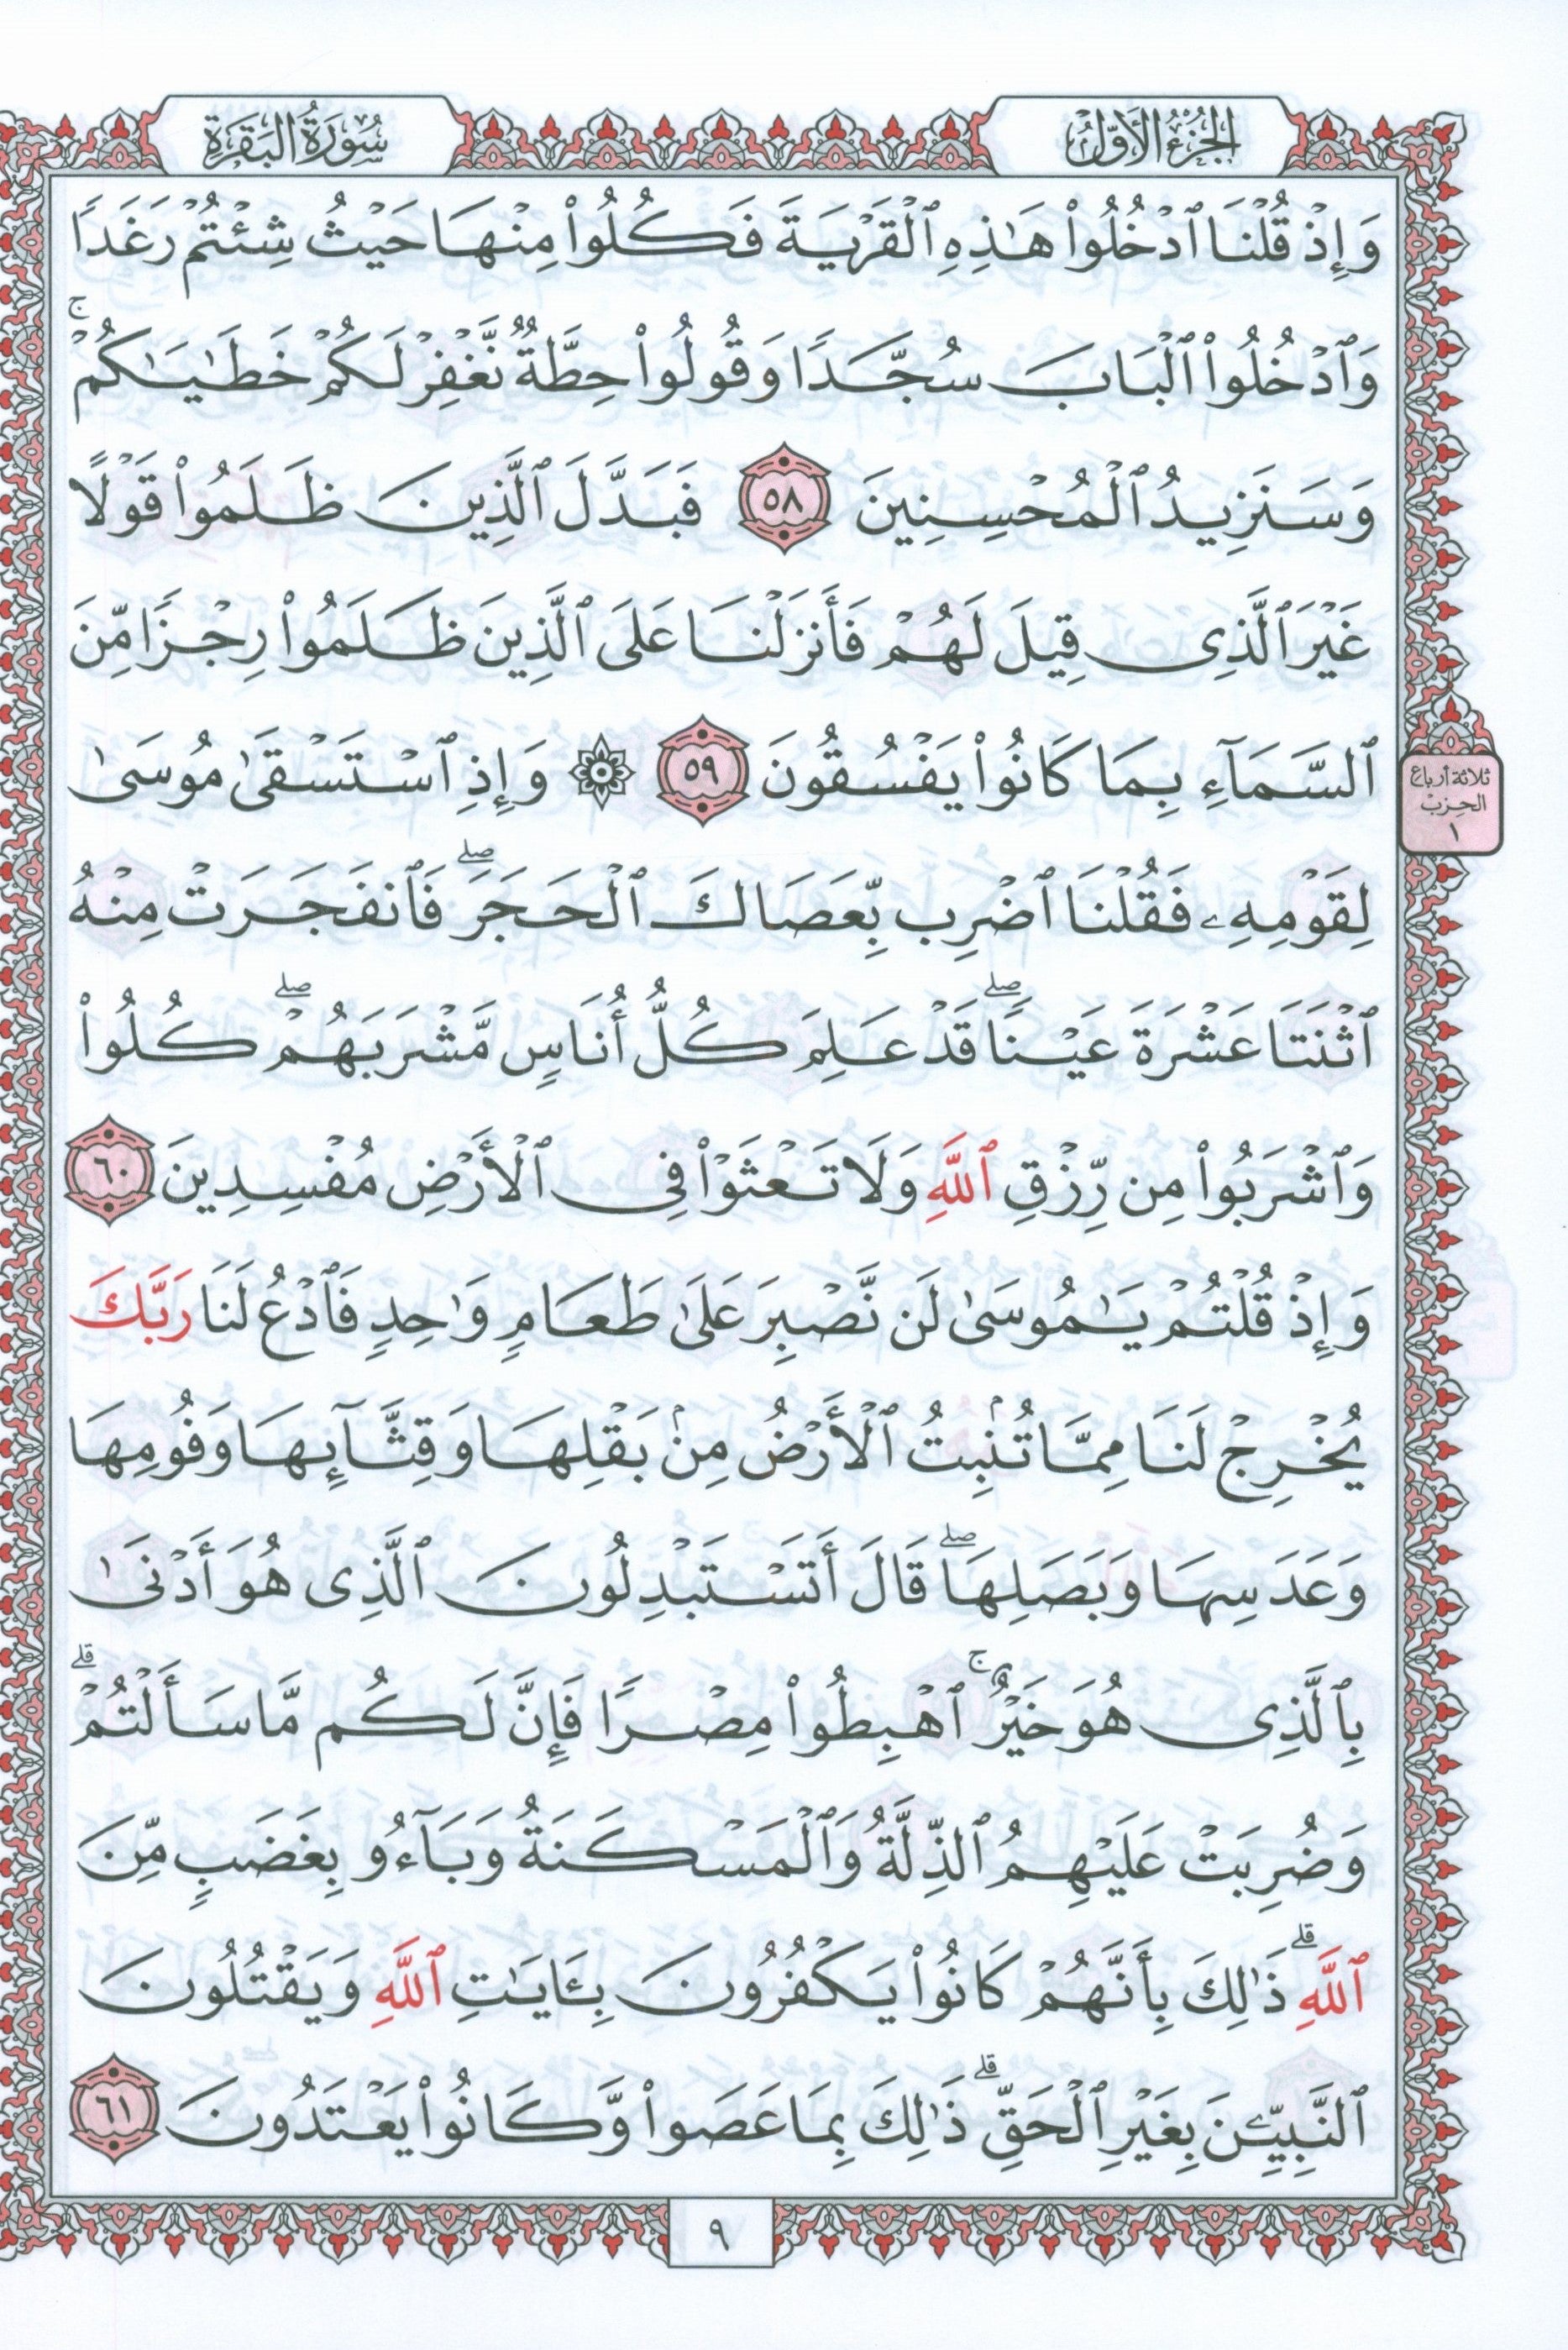 الجزء الأول
سورة البقرة
وَإِذْ قُلْنَا ٱدْخُلُوا۟ هَـٰذِهِ ٱلْقَرْيَةَ فَكُلُوا۟ مِنْهَا حَيْثُ شِئْتُمْ رَغَدًا
وَٱدْخُلُوا۟ ٱلْبَابَ سُجَّدًا وَقُولُوا۟ حِطَّةٌ نَّغْفِرْ لَكُمْ خَطَـٰيَـٰكُمْ ۚ
وَسَنَزِيدُ ٱلْمُحْسِنِينَ ٥٨ فَبَدَّلَ ٱلَّذِينَ ظَلَمُوا۟ قَوْلًا
غَيْرَ ٱلَّذِى قِيلَ لَهُمْ فَأَنزَلْنَا عَلَى ٱلَّذِينَ ظَلَمُوا۟ رِجْزًا مِّنَ
ٱلسَّمَآءِ بِمَا كَانُوا۟ يَفْسُقُونَ ٥٩ ۞ وَإِذِ ٱسْتَسْقَىٰ مُوسَىٰ
ثلاثة أرباع
الحزب
١
لِقَوْمِهِۦ فَقُلْنَا ٱضْرِب بِّعَصَاكَ ٱلْحَجَرَ ۖ فَٱنفَجَرَتْ مِنْهُ
ٱثْنَتَا عَشْرَةَ عَيْنًا ۖ قَدْ عَلِمَ كُلُّ أُنَاسٍ مَّشْرَبَهُمْ ۖ كُلُوا۟
وَٱشْرَبُوا۟ مِن رِّزْقِ ٱللَّهِ وَلَا تَعْثَوْا۟ فِى ٱلْأَرْضِ مُفْسِدِينَ ٦٠
وَإِذْ قُلْتُمْ يَـٰمُوسَىٰ لَن نَّصْبِرَ عَلَىٰ طَعَامٍ وَٰحِدٍ فَٱدْعُ لَنَا رَبَّكَ
يُخْرِجْ لَنَا مِمَّا تُنۢبِتُ ٱلْأَرْضُ مِنۢ بَقْلِهَا وَقِثَّآئِهَا وَفُومِهَا
وَعَدَسِهَا وَبَصَلِهَا ۖ قَالَ أَتَسْتَبْدِلُونَ ٱلَّذِى هُوَ أَدْنَىٰ
بِٱلَّذِى هُوَ خَيْرٌ ۚ ٱهْبِطُوا۟ مِصْرًا فَإِنَّ لَكُم مَّا سَأَلْتُمْ ۗ
وَضُرِبَتْ عَلَيْهِمُ ٱلذِّلَّةُ وَٱلْمَسْكَنَةُ وَبَآءُو بِغَضَبٍ مِّنَ
ٱللَّهِ ۗ ذَٰلِكَ بِأَنَّهُمْ كَانُوا۟ يَكْفُرُونَ بِـَٔايَـٰتِ ٱللَّهِ وَيَقْتُلُونَ
ٱلنَّبِيِّـۧنَ بِغَيْرِ ٱلْحَقِّ ۗ ذَٰلِكَ بِمَا عَصَوا۟ وَّكَانُوا۟ يَعْتَدُونَ ٦١
٩